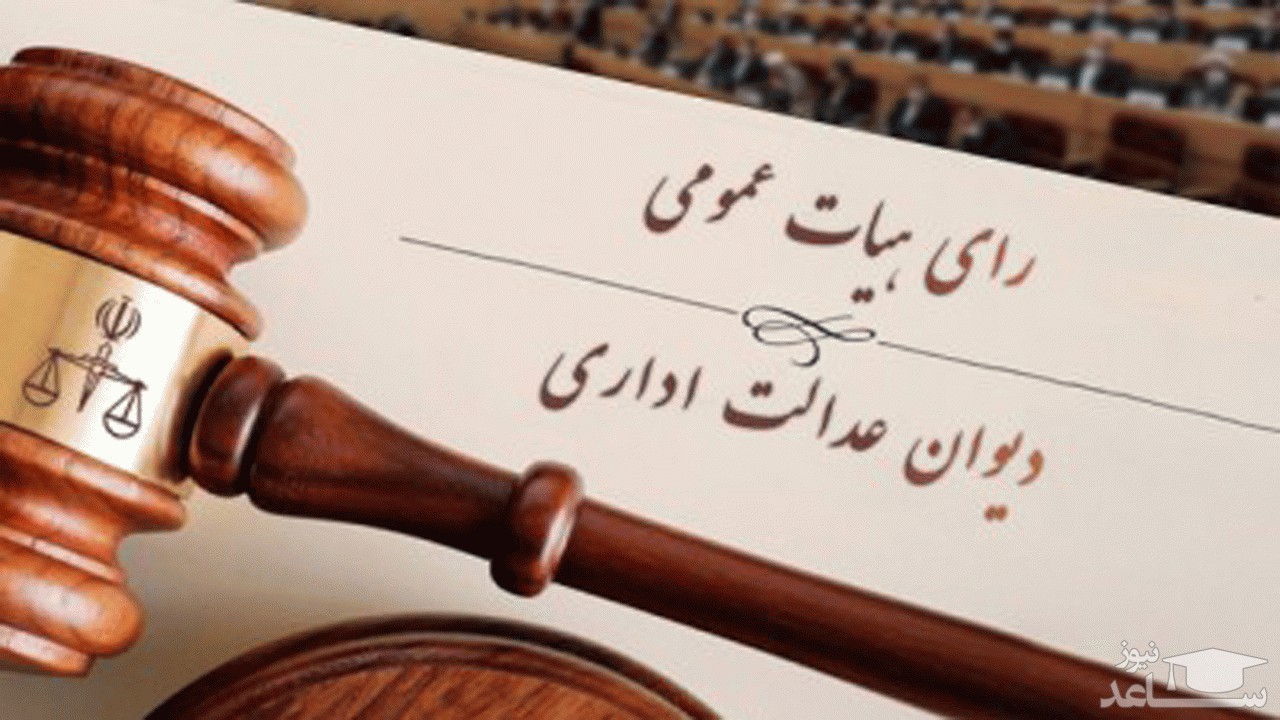 رای هیات عمومی
دیوان عدالت اداری
نیوز
ساعد